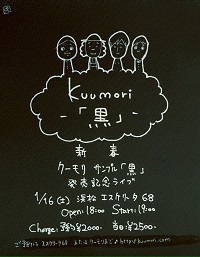 Kuumori
-「黒」-
新春
クーモリ サンプル「黒」
発売記念ライブ
1/16(土) 浜松 エスケリータ 68
Open: 18:00 Start: 19:00
Charge: 予約¥2000- 当日¥2500-
ご予約は エスケリータ68 または クーモリまで♪ http://kuumori.com